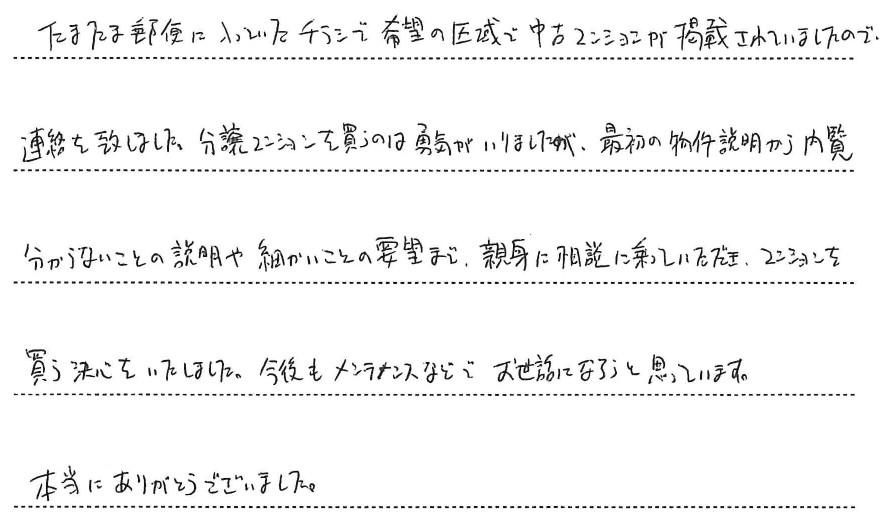 たまたま郵便に入っていたチラシで希望の区域で中古マンションが掲載されていましたので、
連絡を致しました。分譲マンションを買うのは勇気がいりましたが、最初の物件説明から内覧
分からないことの説明や細かいことの要望まで、親身に相談に乗っていただき、マンションを
買う決心をいたしました。今後もメンテナンスなどでお世話になろうと思っています。
本当にありがとうございました。